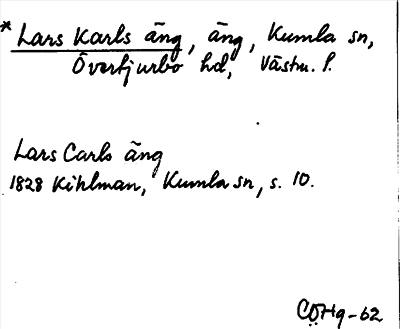 * Lars Karls äng, äng, Kumla sn,
Övertjurbo hd, Västm. l.
Lars Carls äng
1828 Kihlman, Kumla sn, s. 10.
CÖHg-62